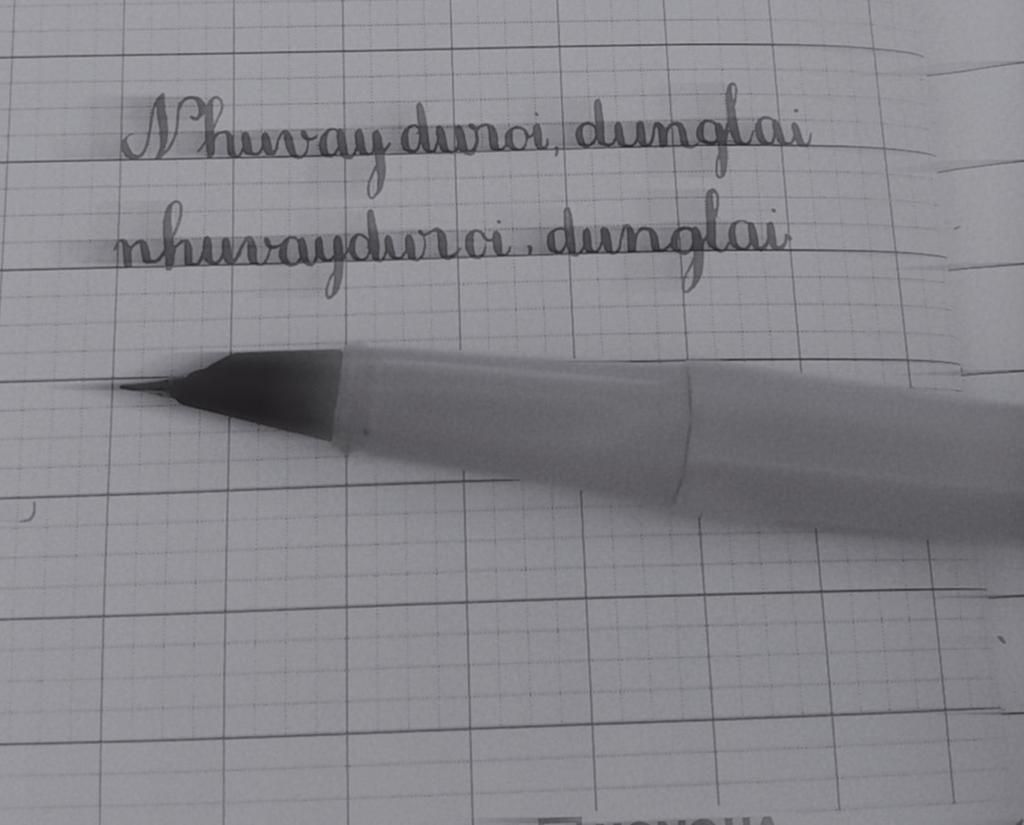 Nhuvay duroi, dunglai
nhuvayduroi, dunglai